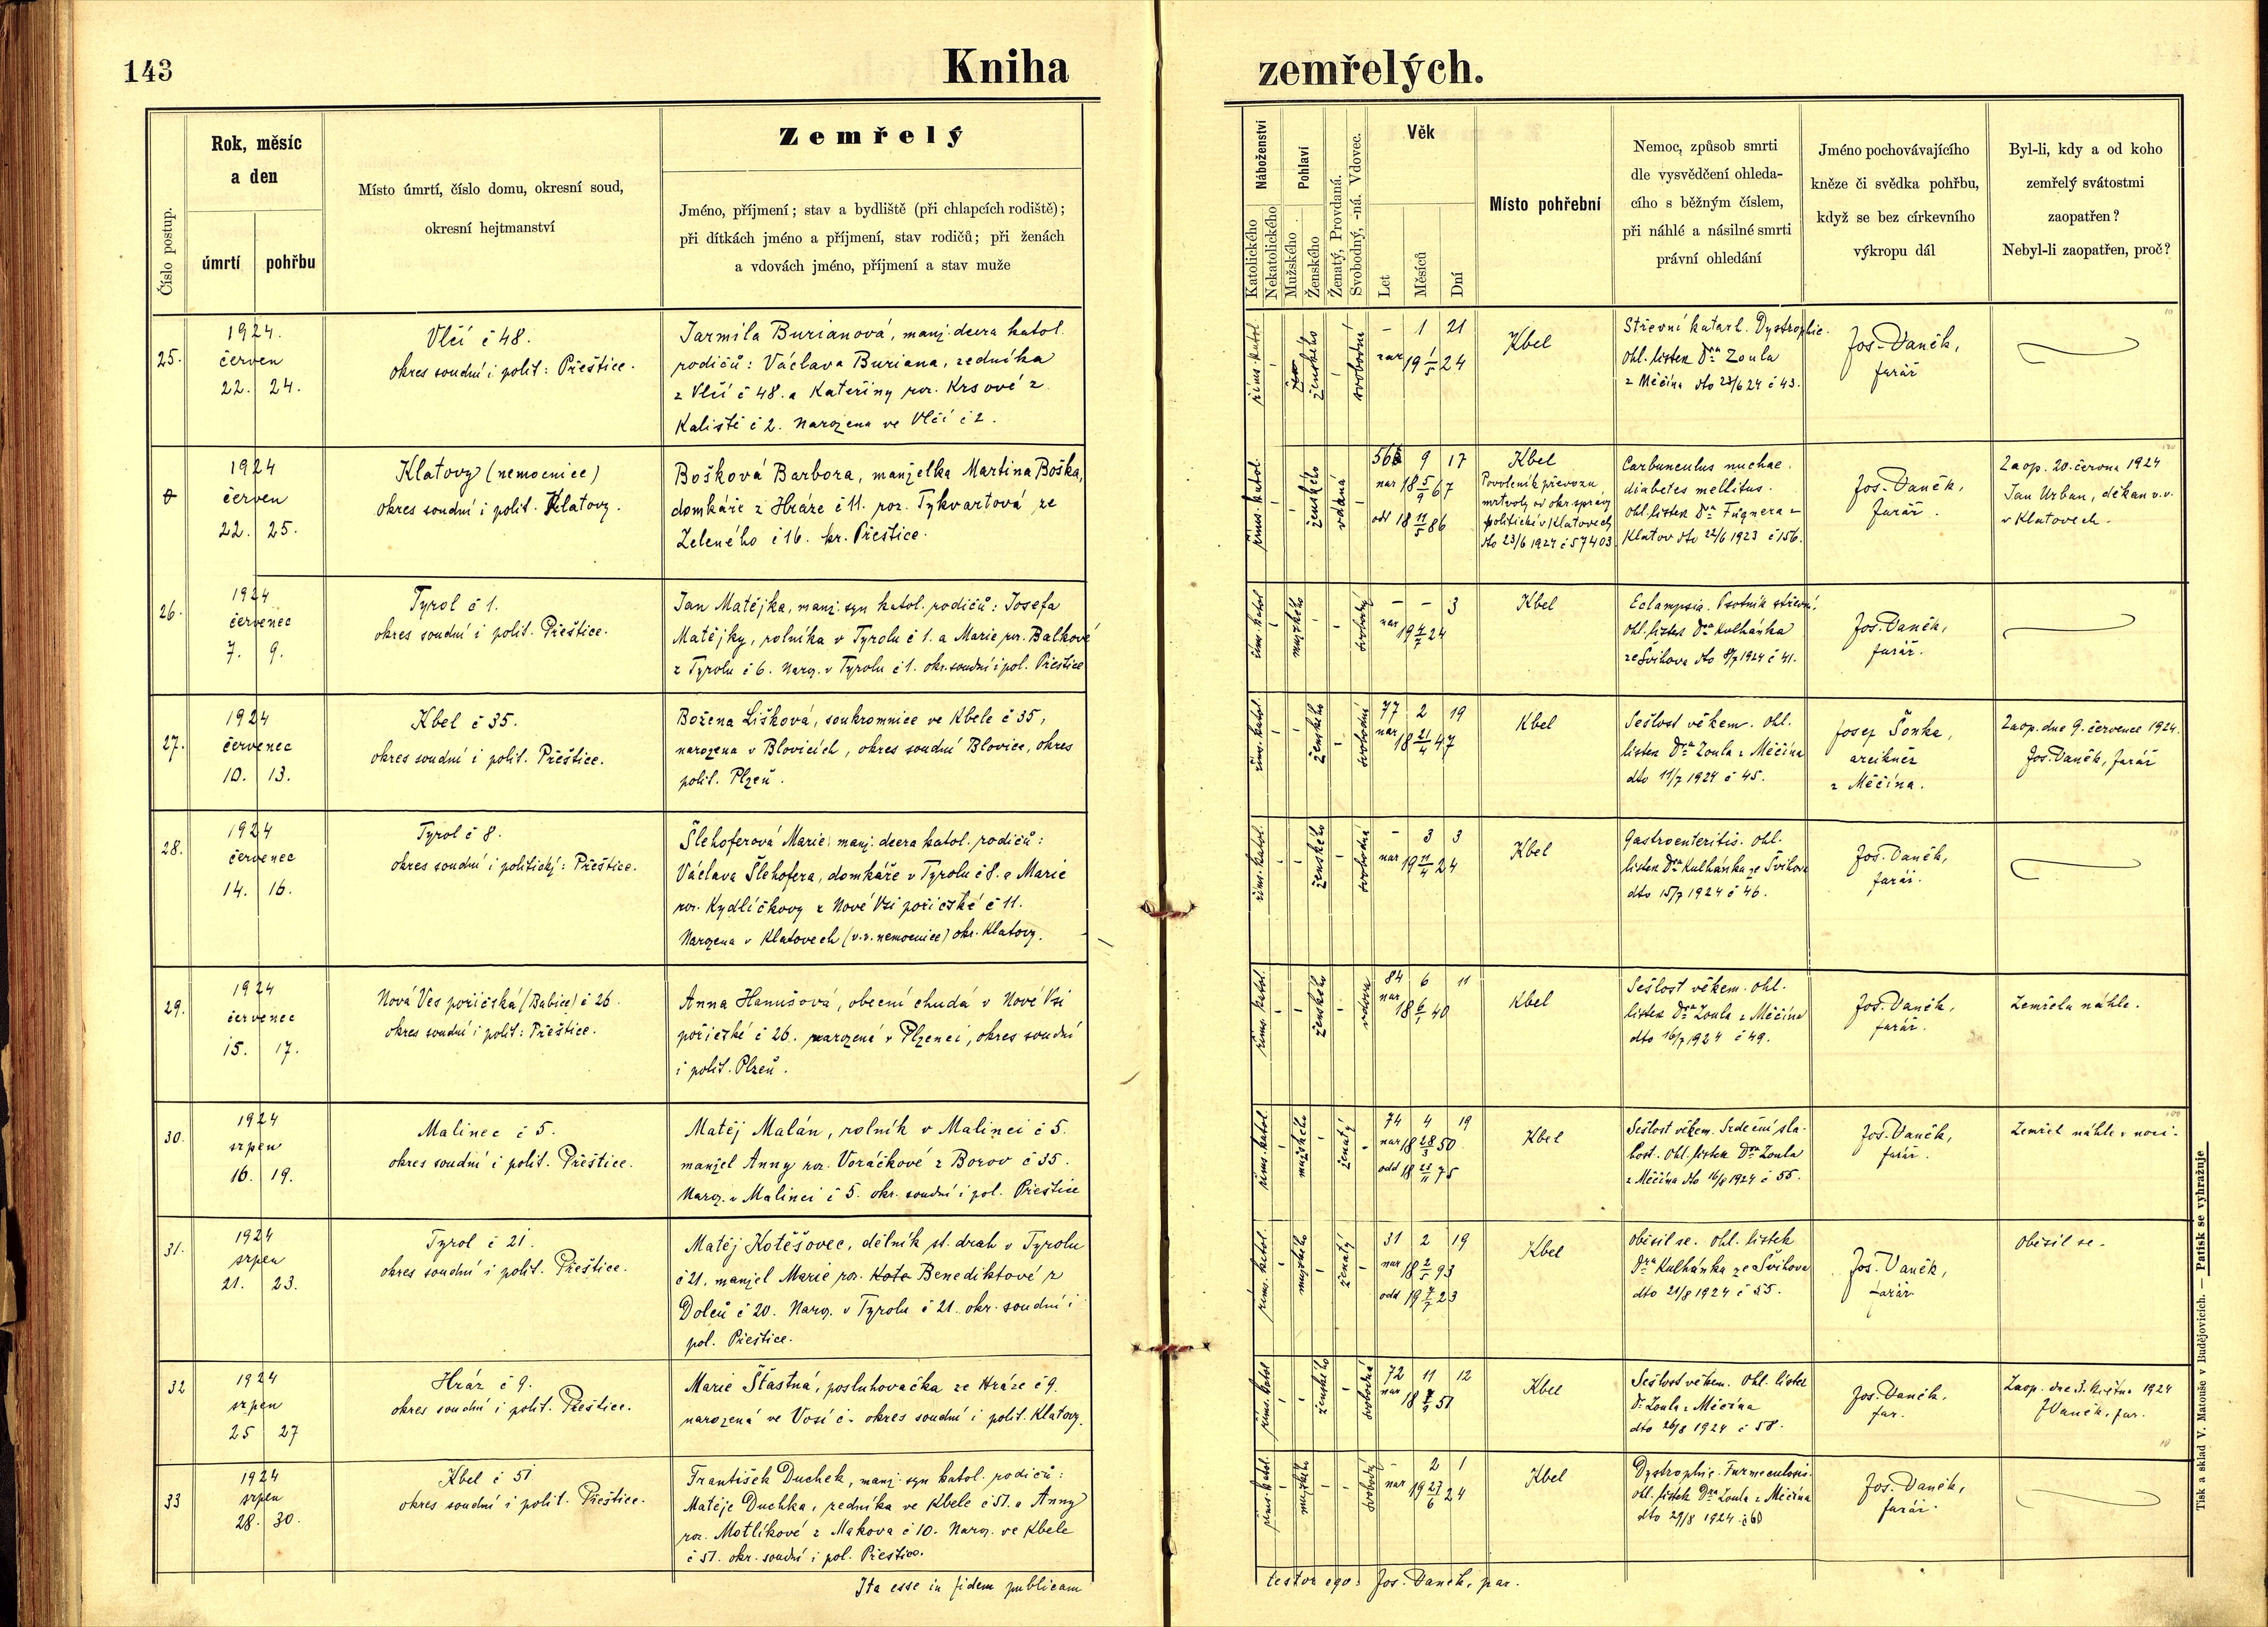 143
Kniha
zemřelých.
Číslo postup.
Rok, měsíc
a den
úmrtí
pohřbu
Místo úmrtí, číslo domu, okresní soud,
okresní hejtmanství
Zemřelý
Jméno, příjmení; stav a bydliště (při chlapcích rodiště);
při dítkách jméno a příjmení, stav rodičů; při ženách
a vdovách jméno, příjmení a stav muže
Náboženství
Katolického
Nekatolického
Pohlaví
Mužského
Ženského
Ženatý, Provdaná.
Svobodný, -ná. Vdovec.
Věk
Let
Měsíců
Dní
Místo pohřební
Nemoc, způsob smrti
dle vysvědčení ohleda-
cího s běžným číslem,
při náhlé a násilné smrti
právní ohledání
Jméno pochovávajícího
kněze či svědka pohřbu,
když se bez církevního
výkropu dál
Byl-li, kdy a od koho
zemřelý svátostmi
zaopatřen?
Nebyl-li zaopatřen, proč?
25.
1924.
červen
22. 24.
Vlčí č 48.
okres soudní i polit: Přeštice.
Jarmila Burianová, manž. dcera katol.
rodičů: Václava Buriana, zedníka
z Vlčí č 48. a Kateřiny roz. Krsové z
Kaliště č 2. Narozena ve Vlčí č 2.
řims. katol.
ženského
svobodná
- 1 21
nar 19 1/5 24
Kbel
Střevní katarh. Dystrophie.
Ohl. lístek Dra Zoula
z Měčína dto 23/6 24 č 43.
Jos. Vaněk,
farář
0
1924
červen
22. 25.
Klatovy (nemocnice)
okres soudní i polit. Klatovy.
Bošková Barbora, manželka Martina Boška,
domkáře z Hráze č 11. roz. Tykvartová ze
Zeleného č 16. kr. Přeštice.
řims. katol.
ženského
vdaná
56 9 17
nar 18 5/9 67
odd 18 11/5 86
Kbel
Povoleník převozu
mrtvoly od okr. správy
politické v Klatovech
dto 23/6 1924 č 57403
Carbunculus nuchae.
diabetes mellitus.
Ohl. lístek Dra Fügnera z
Klatov dto 22/6 1923 č 156.
Jos. Vaněk,
farář.
Zaop. 20. června 1924
Jan Urban, děkan v.v.
v Klatovech.
26.
1924
červenec
7. 9.
Tyrol č 1.
okres soudní i polit. Přeštice.
Jan Matějka, manž. syn katol. rodičů: Josefa
Matějky, rolníka v Tyrolu č 1. a Marie roz. Balkové
z Tyrolu č 6. Naroz. v Tyrolu č 1. okr. soudní i pol. Přeštice
řím. katol
mužského
svobodný
- - 3
nar 19 4/7 24
Kbel
Eclampsia. Psotník střevní.
Ohl. lístek Dra Kulhánka
ze Švihova dto 8/7 1924 č 41.
Jos. Vaněk,
farář.
27.
1924
červenec
10. 13.
Kbel č 35.
okres soudní i polit. Přeštice.
Božena Lišková, soukromnice ve Kbele č 35,
narozena v Blovicích, okres soudní Blovice, okres
polit. Plzeň.
řím. katol.
ženského
svobodná
77 2 19
nar 18 21/4 47
Kbel
Sešlost věkem. Ohl.
lístek Dra Zoula z Měčína
dto 11/7 1924 č 45.
Josef Šonka,
arcikněz
z Měčína.
Zaop. dne 9. července 1924.
Jos. Vaněk, farář
28.
1924
červenec
14. 16.
Tyrol č 8.
okres soudní i politický: Přeštice.
Šlehoferová Marie, manž. dcera katol. rodičů:
Václava Šlehofera, domkáře v Tyrolu č 8. a Marie
roz. Kydlíčkovy z Nové Vsi pořícské č 11.
Narozena v Klatovech (v.v. nemocnice) okr. Klatovy.
řims. katol.
ženského
svobodná
- 3 3
nar 19 11/4 24
Kbel
Gastroenteritis. Ohl.
lístek Dra Kulhánka ze Švihova
dto 15/7 1924 č 46.
Jos. Vaněk,
farář.
29.
1924
červenec
15. 17.
Nová Ves pořícská (Babice) č 26.
okres soudní i polit: Přeštice.
Anna Hanušová, obecní chudá v Nové Vsi
pořícské č 26. narozená v Plzenci, okres soudní
i polit. Plzeň.
řims. katol.
ženského
vdova
84 6 11
nar 18 6/1 40
Kbel
Sešlost věkem. Ohl.
lístek Dra Zoula z Měčína
dto 16/7 1924 č 49.
Jos. Vaněk,
farář.
Zemřela náhle.
30.
1924
srpen
16. 19.
Malinec č 5.
okres soudní i polit. Přeštice.
Matěj Malán, rolník v Malinci č 5.
manžel Anny roz. Voráčkové z Borov č 35.
Naroz. v Malinci č 5. okr. soudní i pol. Přeštice
řims. katol
mužského
ženatý
74 4 19
nar 18 28/3 50
odd 18 21/11 75
Kbel
Sešlost věkem. Srdeční sla-
bost. Ohl. lístek Dra Zoula
z Měčína dto 16/8 1924 č 55.
Jos. Vaněk,
farář.
Zemřel náhle v noci.
31.
1924
srpen
21. 23.
Tyrol č 21.
okres soudní i polit. Přeštice.
Matěj Kotěšovec, dělník st. drah v Tyrolu
č 21, manžel Marie roz. Kote Benediktové z
Dolců č 20. Naroz. v Tyrolu č 21. okr. soudní i
pol. Přeštice.
řims. katol.
mužského
ženatý
31 2 19
nar 18 2/5 93
odd 19 7/7 23
Kbel
Oběsil se. Ohl. lístek
Dra Kulhánka ze Švihova
dto 21/8 1924 č 55.
Jos. Vaněk,
farář
Oběsil se.
32
1924
srpen
25 27
Hráz č 9.
okres soudní i polit. Přeštice.
Marie Šťastná, posluhovačka ze Hráze č 9.
narozená ve Vosí č - okres soudní i polit. Klatovy.
řims. katol
ženského
svobodná
72 11 12
nar 18 51
Kbel
Sešlost věkem. Ohl. lístek
Dr Zoula z Měčína
dto 26/8 1924 č 58.
Jos. Vaněk,
far.
Zaop. dne 3. května 1924
JVaněk, far.
33
1924
srpen
28. 30.
Kbel č 51
okres soudní i polit. Přeštice.
František Duchek, manž. syn katol. rodičů:
Matěje Duchka, zedníka ve Kbele č 51. a Anny
roz. Motlíkové z Makova č 10. Naroz. ve Kbele
č 51. okr. soudní i pol. Přeštice.
řims. katol.
mužského
svobodný
- 2 1
nar 19 27/6 24
Kbel
Dystrophie. Furunculosis.
Ohl. lístek Dra Zoula z Měčína
dto 29/8 1924 č 60
Jos. Vaněk,
farář.
Ita esse in fidem publicam
testor ego: Jos. Vaněk, par.
Tisk a sklad V. Matouše v Budějovicích. — Patisk se vyhražuje